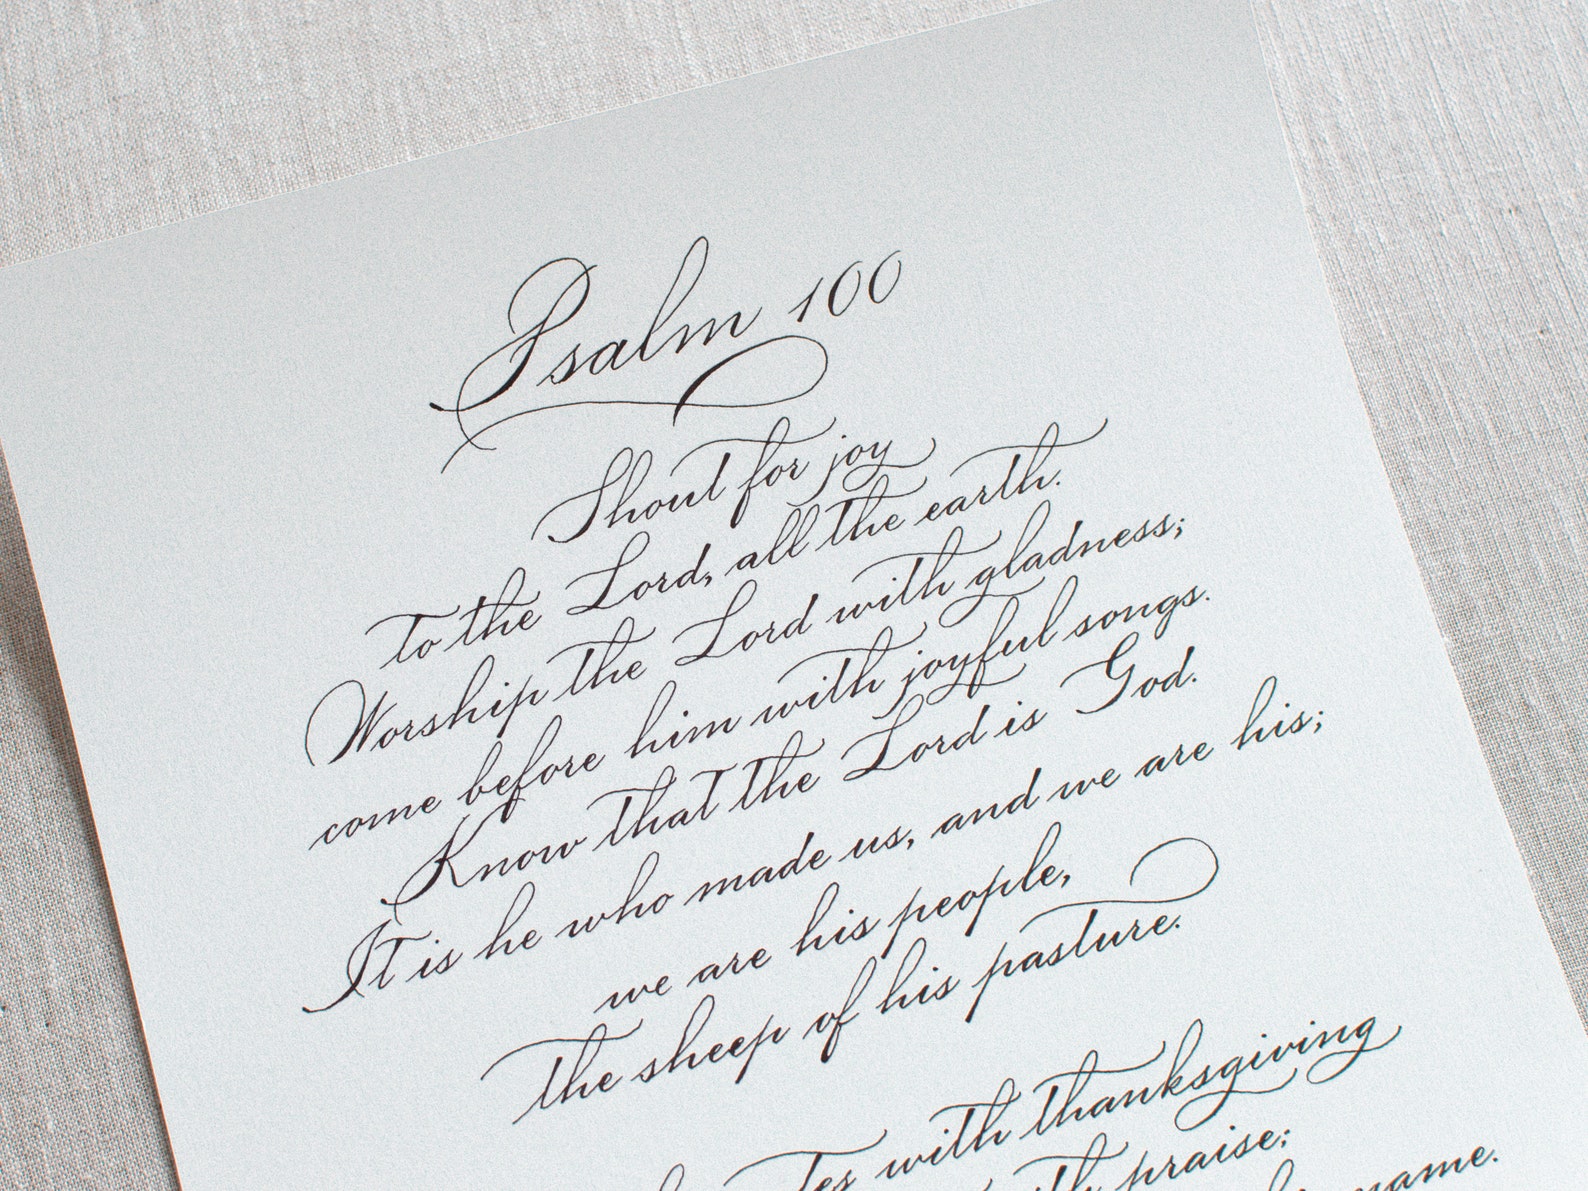 Psalm 100
Shout for joy
to the Lord, all the earth.
Worship the Lord with gladness;
come before him with joyful songs.
Know that the Lord is God.
It is he who made us, and we are his;
we are his people,
the sheep of his pasture.
with thanksgiving
praise;
name.